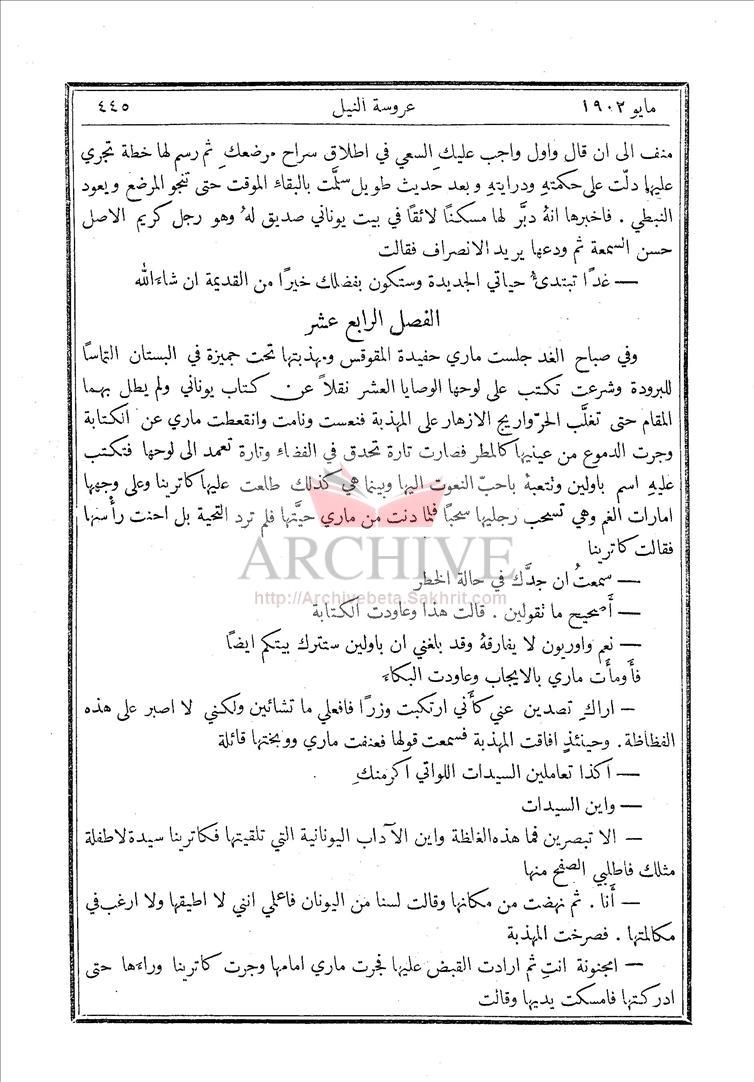 مايو ١٩٠٢ عروسة النيل ٤٤٥
منف الى ان قال واول واجب عليكِ السعي في اطلاق سراح مرضعكِ ثم رسم لها خطة تجري
عليها دلّت على حكمتهِ ودرايتهِ وبعد حديث طويل سلَّمت بالبقاء الموقت حتى تنجو المرضع ويعود
النبطي . فاخبرها انهُ دبَّر لها مسكنًا لائقًا في بيت يوناني صديق لهُ وهو رجل كريم الاصل
حسن السمعة ثم ودعها يريد الانصراف فقالت
— غدًا تبتدئُ حياتي الجديدة وستكون بفضلك خيرًا من القديمة ان شاءَ الله
الفصل الرابع عشر
وفي صباح الغد جلست ماري حفيدة المقوقس ومهذبتها تحت جميزة في البستان التماسًا
للبرودة وشرعت تكتب على لوحها الوصايا العشر نقلاً عن كتاب يوناني ولم يطل بهما
المقام حتى تغلَّب الحرّ واريج الازهار على المهذبة فنعست ونامت وانقعطت ماري عن الكتابة
وجرت الدموع من عينيها كالمطر فصارت تارة تحدق في الفضاء وتارة تعمد الى لوحها فتكتب
عليهِ اسم باولين وتتعبهُ باحبّ النعوت اليها وبينما هي كذلك طلعت عليها كاترينا وعلى وجهها
امارات الغم وهي تسحب رجليها سحبًا فلما دنت من ماري حيَّتها فلم ترد التحية بل احنت رأسها
فقالت كاترينا
ARCHIVE
— سمعتُ ان جدَّك في حالة الخطر
http://Archivebeta.Sakhrit.com
— أصحيح ما تقولين . قالت هذا وعاودت الكتابة
— نعم واوريون لا يفارقهُ وقد بلغني ان باولين ستترك بيتكم ايضًا
فأومأت ماري بالايجاب وعاودت البكاءَ
— اراكِ تصدين عني كأني ارتكبت وزرًا فافعلي ما تشائين ولكني لا اصبر على هذه
الفظاظة . وحينئذٍ افاقت المهذبة فسمعت قولها فعنفت ماري ووبختها قائلة
— اكذا تعاملين السيدات اللواتي اكرمنكِ .
— واين السيدات
— الا تبصرين فما هذه الغلظة واين الآداب اليونانية التي تلقيتها فكاترينا سيدة لاطفلة
مثلك فاطلبي الصفح منها
— أنا . ثم نهضت من مكانها وقالت لسنا من اليونان فاعلمي انني لا اطيقها ولا ارغب في
مكالمتها . فصرخت المهذبة
— امجنونة انتِ ثم ارادت القبض عليها فجرت ماري امامها وجرت كاترينا وراءَها حتى
ادركتها فامسكت يديها وقالت